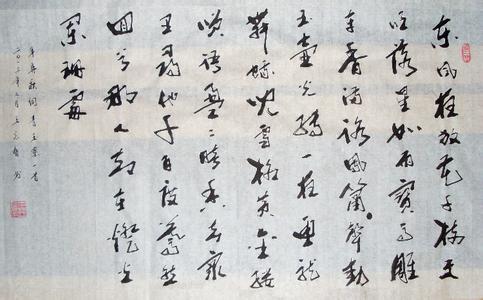 东风夜放花千树更
吹落星如雨寶马雕
车香满路凤箫聲動
玉壶光转一夜鱼龍
舞蛾儿雪柳黄金缕
笑语盈盈暗香去众
里寻他千百度蓦然
回首那人却在燈火
阑珊處
辛弃疾词青玉案一首